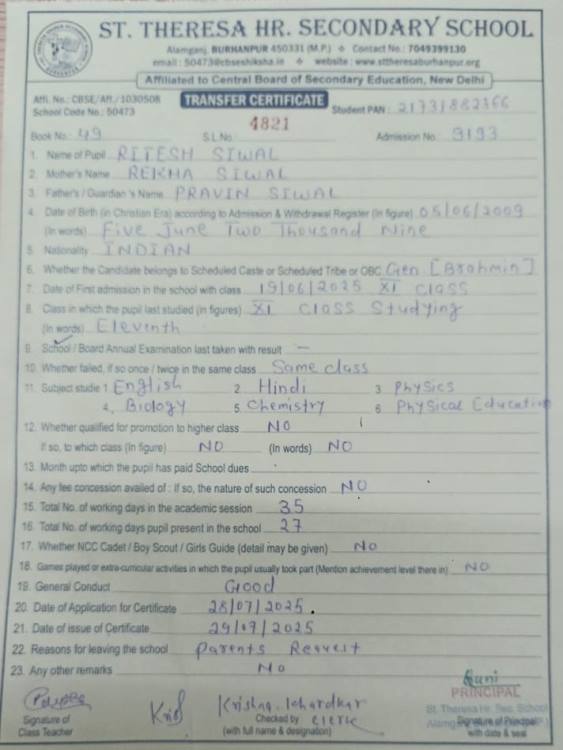 ST. THERESA HR. SECONDARY SCHOOL
Alamganj, BURHANPUR 450331 (M.P.) ❖ Contact No.: 7049399130
email: 50473@cbseshiksha.in ❖ website: www.sttheresaburhanpur.org
Affiliated to Central Board of Secondary Education, New Delhi
Affi. No.: CBSE/Aff./1030508
TRANSFER CERTIFICATE
Student PAN: 21731882366
School Code No.: 50473
4821
Book No.: 49 S.L.No. Admission No. 9193
1. Name of Pupil RITESH SIWAL
2. Mother's Name REKHA SIWAL
3. Father's / Guardian 's Name PRAVIN SIWAL
4. Date of Birth (in Christian Era) according to Admission & Withdrawal Register (in figure) 05/06/2009
(In words) Five June Two Thousand Nine
5. Nationality INDIAN
6. Whether the Candidate belongs to Scheduled Caste or Scheduled Tribe or OBC Gen [Brahmin]
7. Date of First admission in the school with class 19/06/2025 XI Class
8. Class in which the pupil last studied (in figures) XI Class Studying
(In words) Eleventh
9. School / Board Annual Examination last taken with result —
10. Whether failed, if so once / twice in the same class Same class
11. Subject studie 1. English 2 Hindi 3 Physics
4. Biology 5 Chemistry 6 Physical Education
12. Whether qualified for promotion to higher class NO
If so, to which class (In figure) NO (In words) NO
13. Month upto which the pupil has paid School dues
14. Any fee concession availed of : If so, the nature of such concession NO
15. Total No. of working days in the academic session 35
16. Total No. of working days pupil present in the school 27
17. Whether NCC Cadet / Boy Scout / Girls Guide (detail may be given) NO
18. Games played or extra-curricular activities in which the pupil usually took part (Mention achievement level there in) NO
19. General Conduct Good
20. Date of Application for Certificate 28/07/2025.
21. Date of issue of Certificate 29/07/2025
22. Reasons for leaving the school Parents Request
23. Any other remarks NO
PRINCIPAL
Krishna Khardkar
St. Theresa Hr. Sec. School
Signature of Class Teacher
Checked by clerk
(with full name & designation)
Signature of Principal
with date & seal